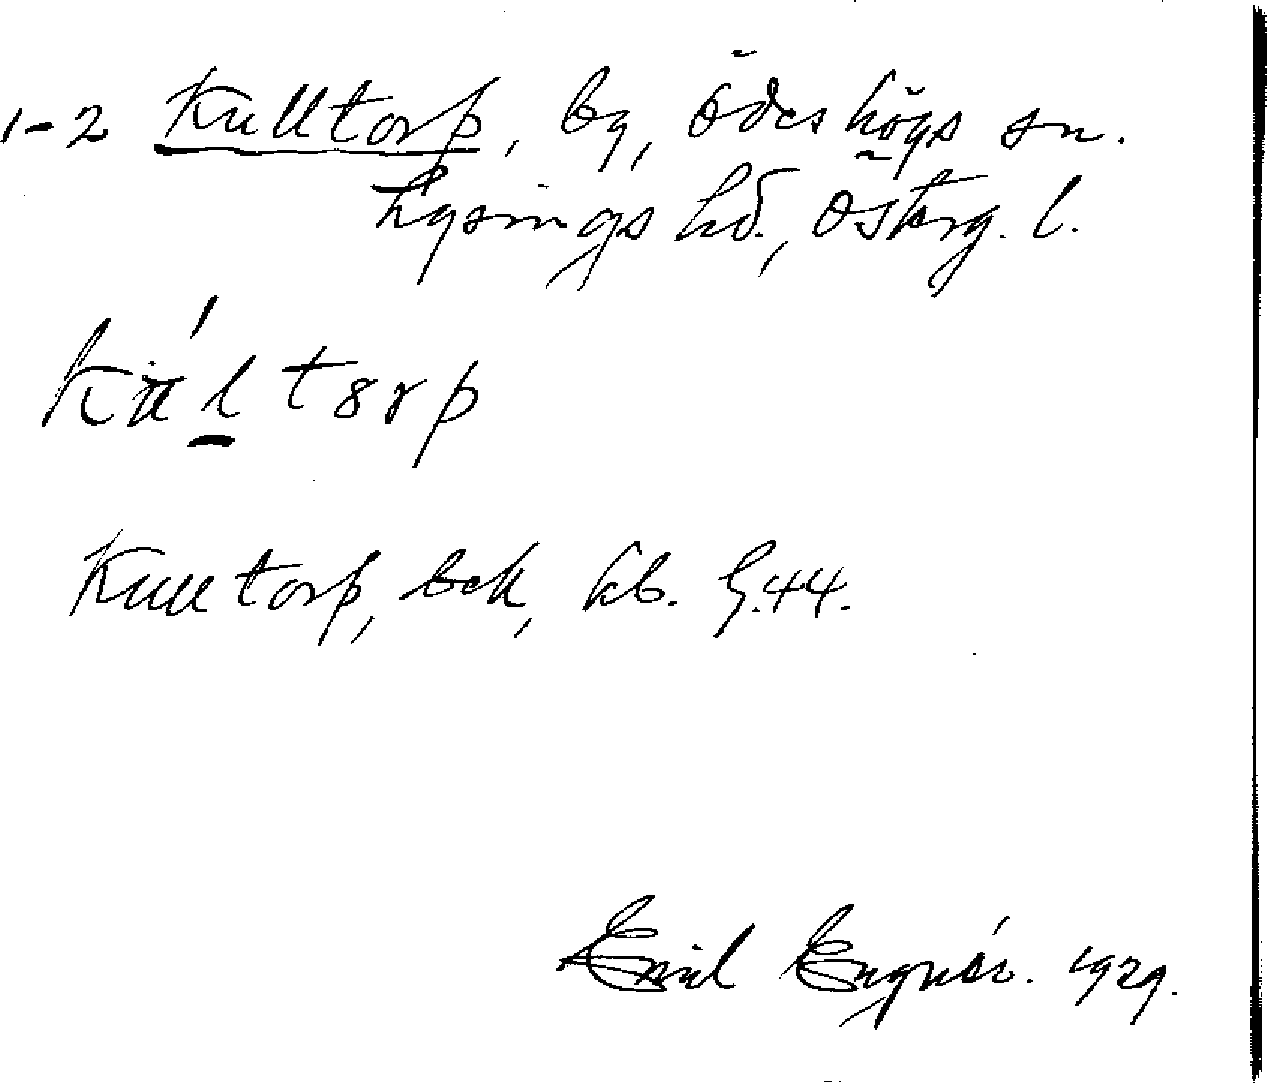 1-2 Kulltorp, by, Ödeshögs sn.
Lysings hd., Österg. l.
Kulltorp, bek, kb. h.44.
Emil Engnér. 1929.